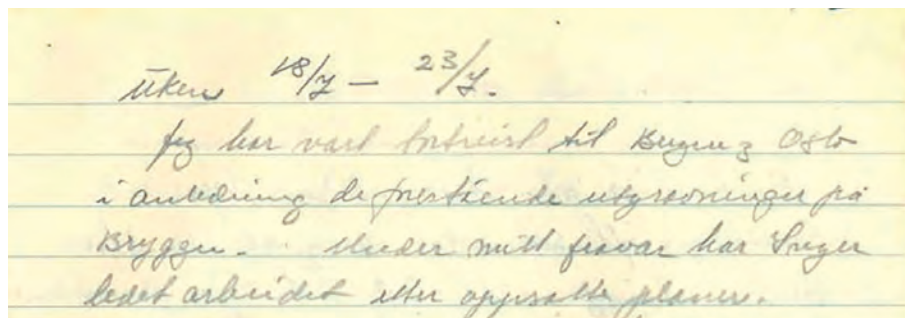 Uken 18/7 – 23/7.
Jeg har vært bortreist til Bergen og Oslo
i anledning de forestående utgravninger på
Bryggen. Under mitt fravær har Inger
ledet arbeidet etter oppsatte planer.